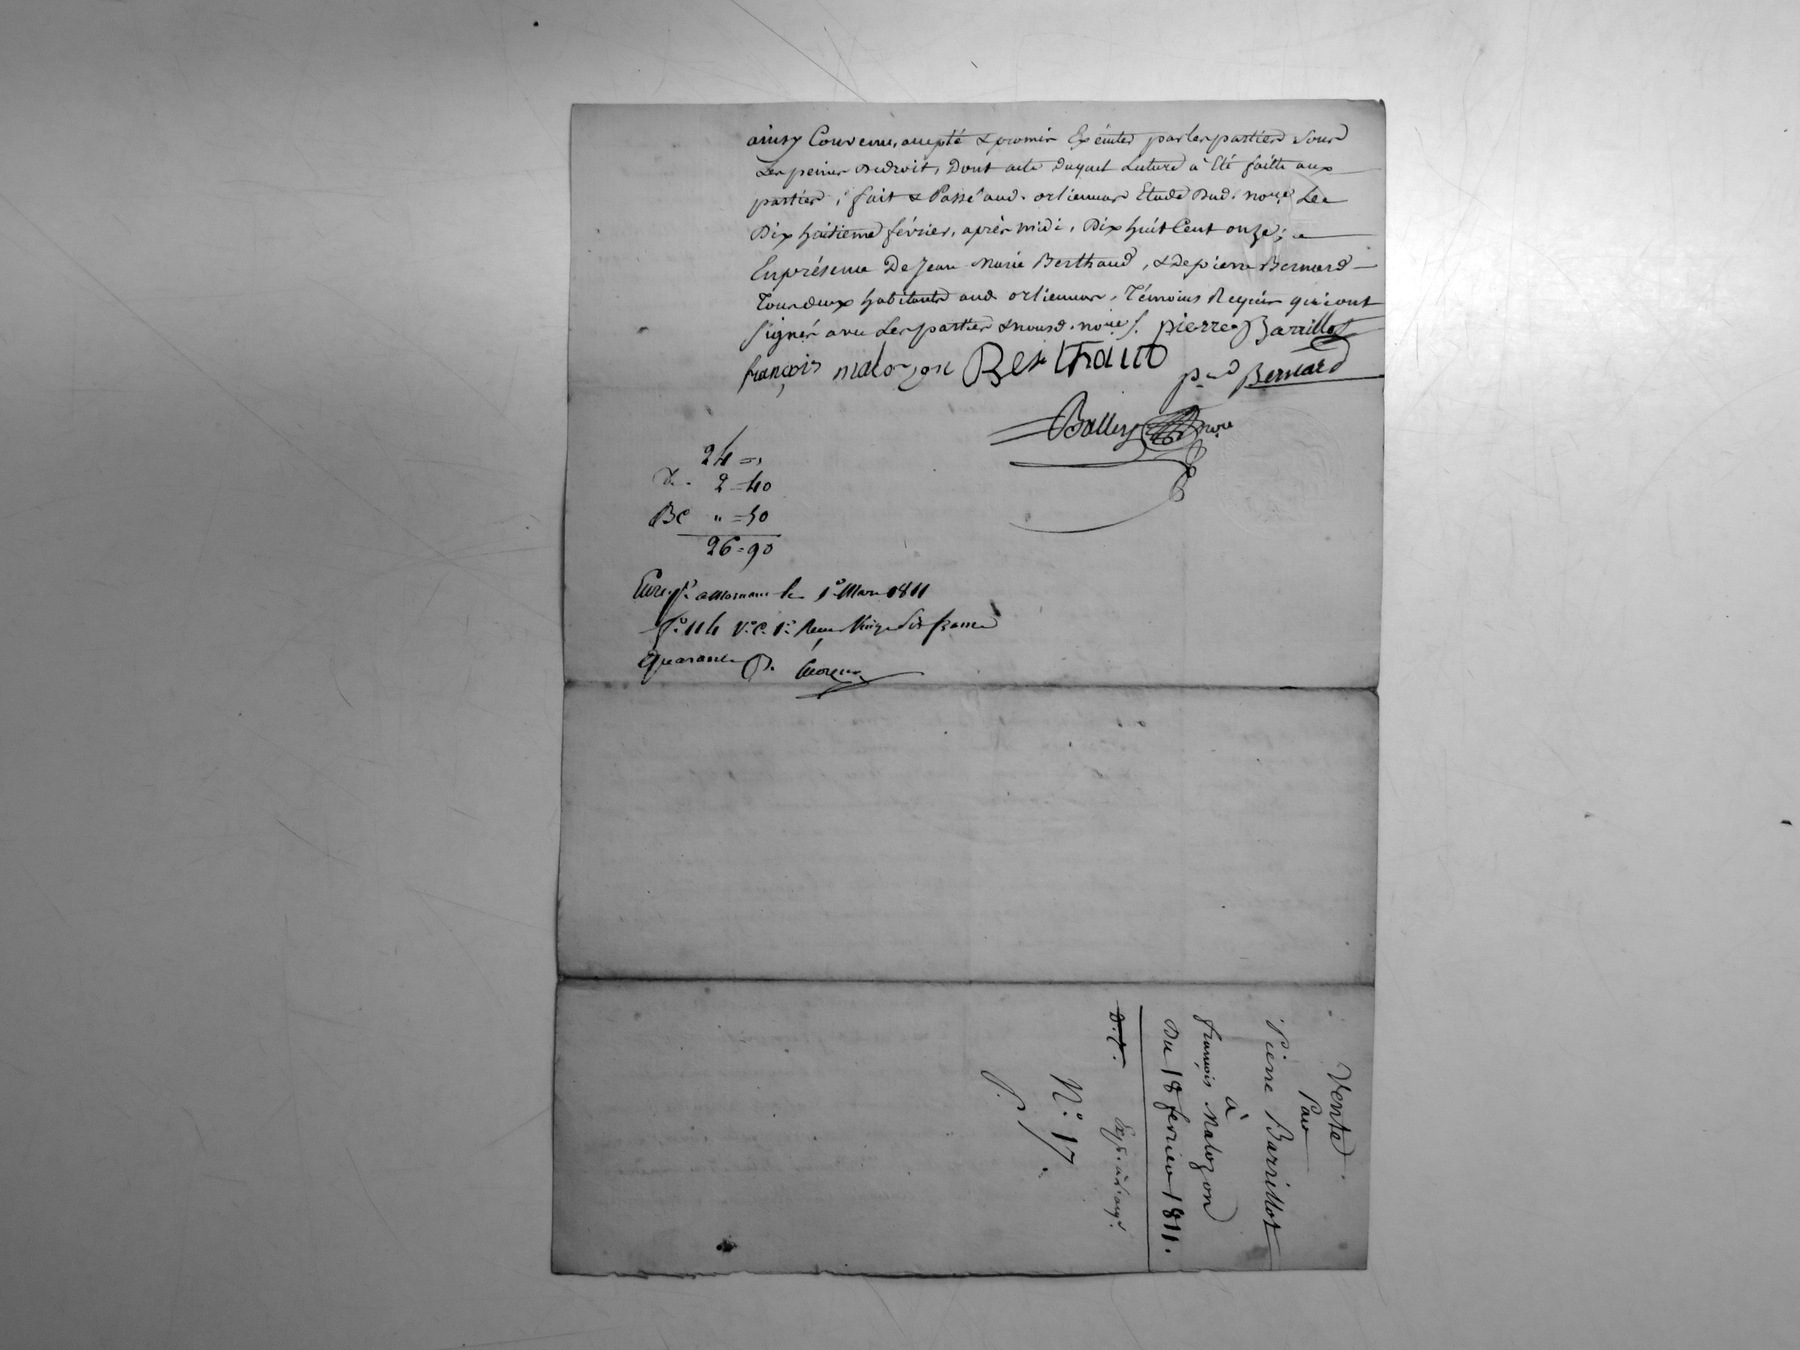 ainsy Convenu, accepté & promis Exécuter par les parties Sous
Les peines De droit, Dont acte Duquel Lecture à Eté faitte aux
parties; fait & Passé aud. orliennas Etude Dud. no.re Le
Dix huitieme février, après midi, Dix huit Cent onze;
En présence De Jean Marie Berthaud, & De pierre Bernard
Tous deux habitants aud. orliennas, Témoins Requis qui ont
signés avec Les parties & nousd. no.re /. pierre Barrillot
françois malozon Berthaud
p.re Bernard
Balley no.re
24 = "
2 = 40
BC " = 50
26 = 90
Enreg.é a Mornant le 1.er Mars 1811
f.o 114 V.o C. 1.e Recu Vingt Six francs
quarante
Vente
Par
Pierre Barrillot
à
françois Malozon
Du 18 fevrier 1811.
N.o 17.